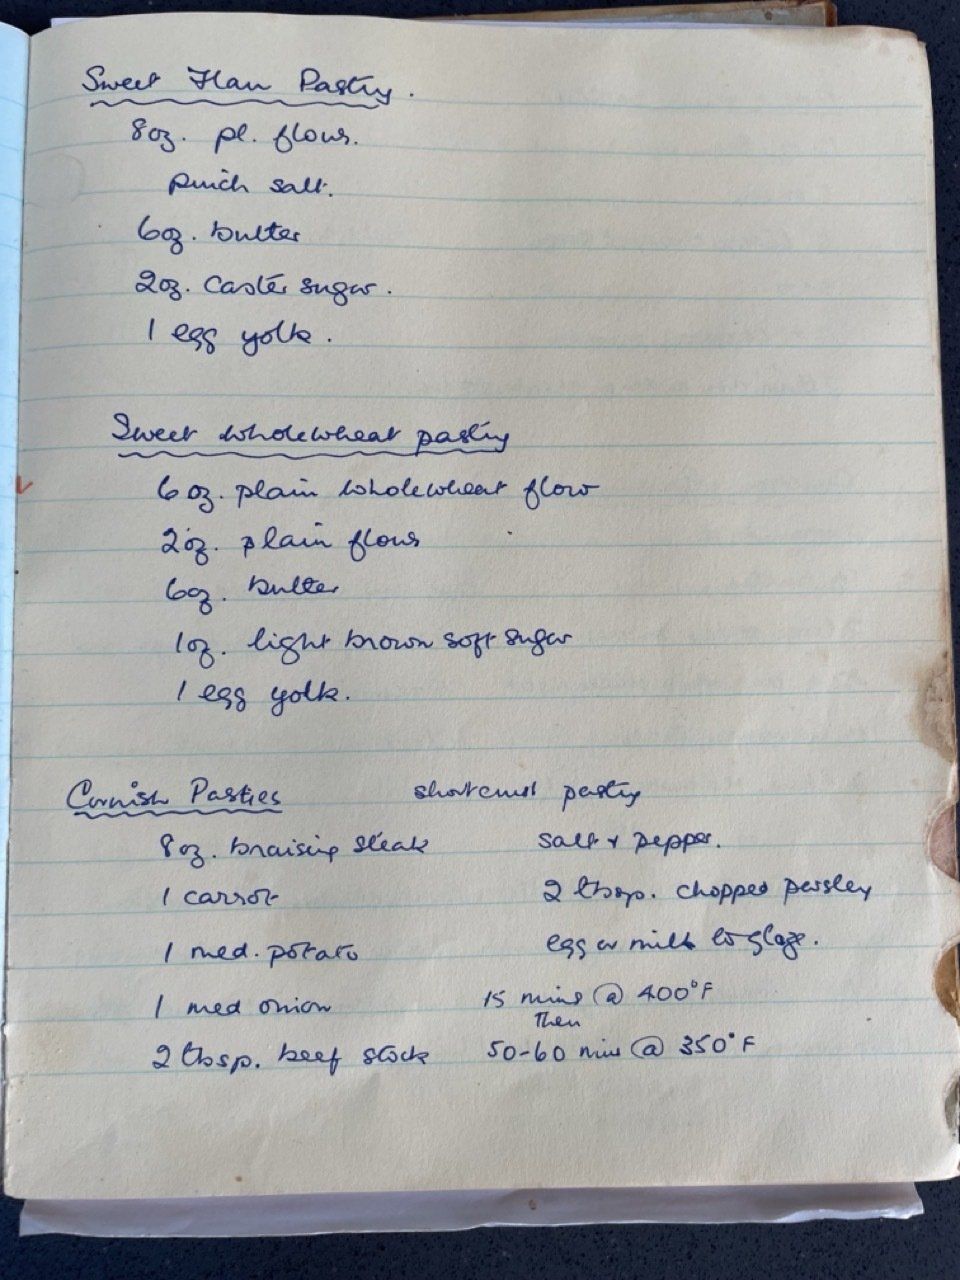 Sweet Flan Pastry.
8oz. pl. flour.
pinch salt.
6oz. butter
2oz. caster sugar.
1 egg yolk.
Sweet wholewheat pastry
6 oz. plain wholewheat flour
2oz. plain flour
6oz. butter
1oz. light brown soft sugar
1 egg yolk.
Cornish Pasties shortcrust pastry
8oz. braising steak salt & pepper.
1 carrot 2 tbsp. chopped parsley
1 med. potato egg or milk to glaze.
1 med onion 15 mins @ 400°F
Then
2 tbsp. beef stock 50-60 mins @ 350°F